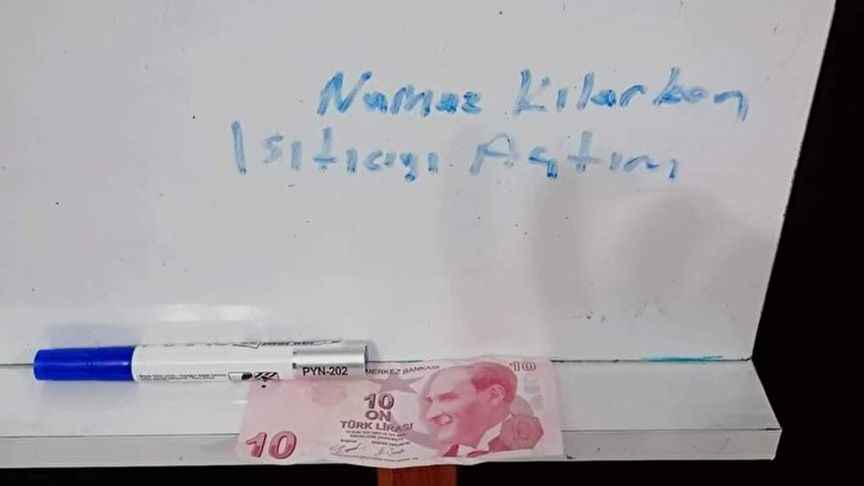 Namaz Kılarken
Isıtıcıyı Açtım
PYN-202
MERKEZ BANKASI
10
10
ON
TÜRK LİRASI
10